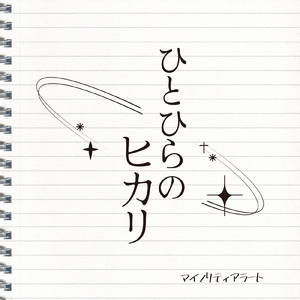 ひとひらの
ヒカリ
マイノリティアラート